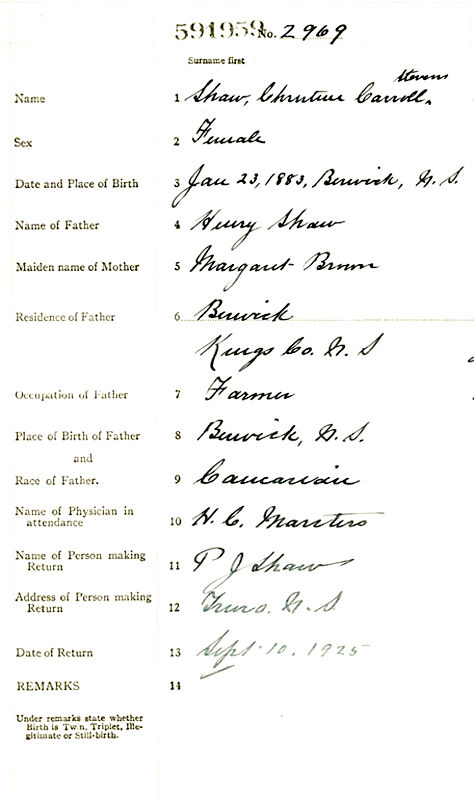 591959 No. 2969
Surname first
Stevens
Name 1 Shaw, Christine Carroll.
Sex 2 Female
Date and Place of Birth 3 Jan 23, 1883, Berwick, N. S.
Name of Father 4 Henry Shaw
Maiden name of Mother 5 Margaret Brown
Residence of Father 6 Berwick
Kings Co. N. S
Occupation of Father 7 Farmer
Place of Birth of Father 8 Berwick, N. S.
and
Race of Father. 9 Caucasian
Name of Physician in
attendance 10 H. C. Marsters
Name of Person making
Return 11 P J Shaw
Address of Person making
Return 12 Truro. N. S
Date of Return 13 Sept 10. 1925
REMARKS 14
Under remarks state whether
Birth is Twin, Triplet, Ille-
gitimate or Still-birth.